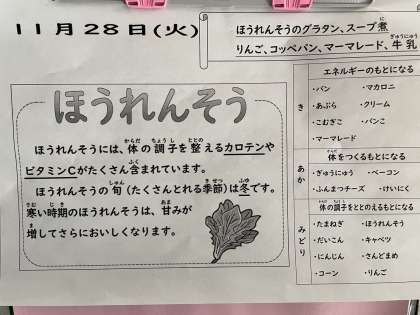 11月28日(火)
ほうれんそうのグラタン、スープ煮
りんご、コッペパン、マーマレード、牛乳
ぎゅうにゅう
ほうれんそう
ほうれんそうには、体の調子を整えるカロテンや
からだ ちょうし ととの
ビタミンCがたくさん含まれています。
ふく
ほうれんそうの旬(たくさんとれる季節)は冬です。
しゅん きせつ ふゆ
寒い時期のほうれんそうは、甘みが
さむ じき あま
増してさらにおいしくなります。
ま
エネルギーのもとになる
き
・パン ・マカロニ
・あぶら ・クリーム
・こむぎこ ・パンこ
・マーマレード
体をつくるもとになる
からだ
あか
・ぎゅうにゅう ・ベーコン
・ふんまつチーズ ・けいにく
体の調子をととのえるもとになる
みどり
・たまねぎ ・ほうれんそう
・だいこん ・キャベツ
・にんじん ・さんどまめ
・コーン ・りんご